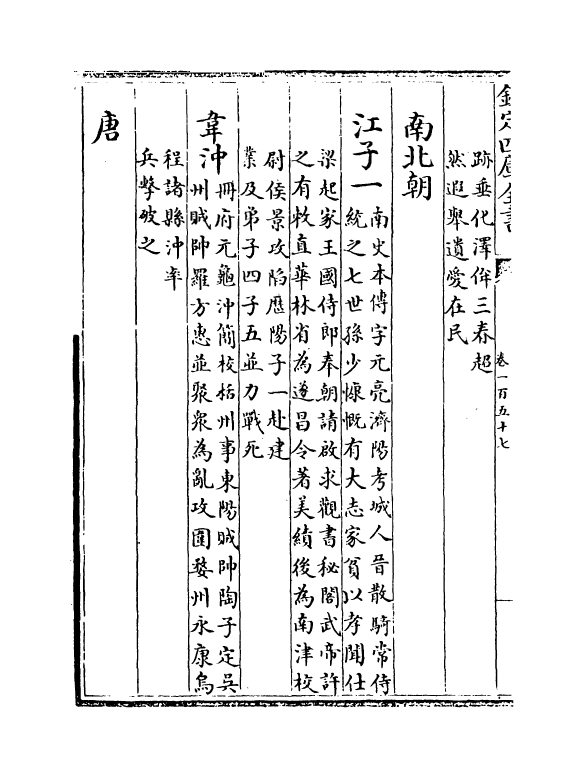 欽定四庫全書
卷一百五十七
跡垂化澤侔三春超
然遐舉遺愛在民
南北朝
江子一
南史本傳字元亮濟陽考城人晉散騎常侍
統之七世孫少慷慨有大志家貧以孝聞仕
梁起家王國侍郎奉朝請啟求觀書秘閣武帝許
之有敕直華林省為遂昌令著美績後為南津校
尉侯景攻陷歷陽子一赴建
業及弟子四子五並力戰死
韋沖
冊府元龜沖簡校括州事東陽賊帥陶子定吳
州賊帥羅方惠並聚衆為亂攻圍婺州永康烏
程諸縣沖率
兵擊破之
唐